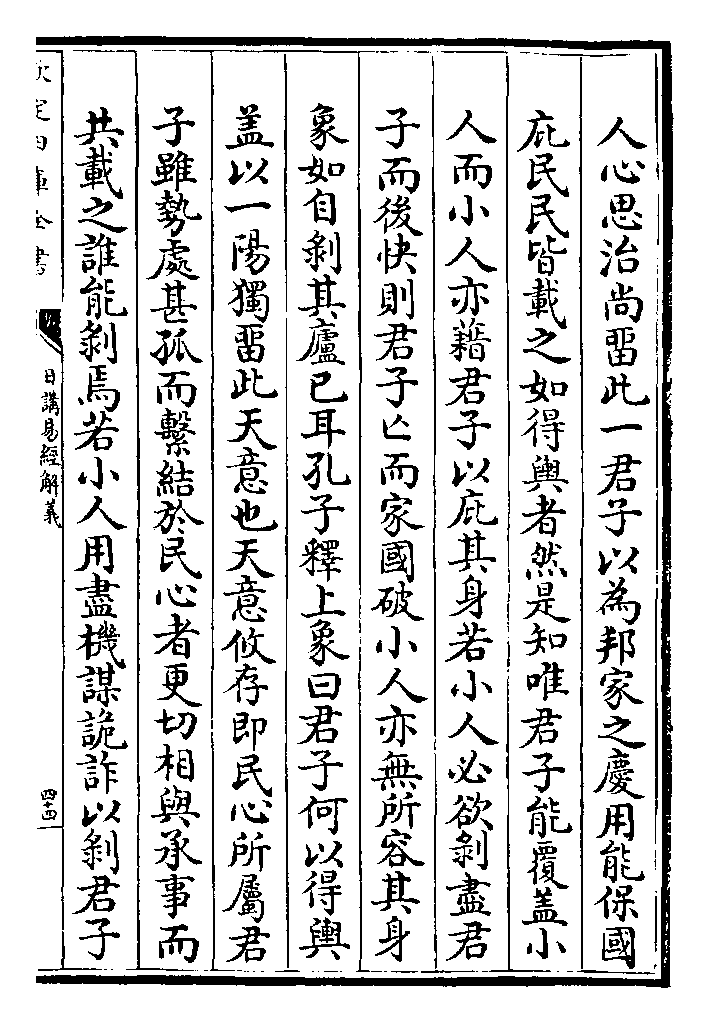 人心思治尚畱此一君子以為邦家之慶用能保國
庇民民皆載之如得輿者然是知唯君子能覆盖小
人而小人亦藉君子以庇其身若小人必欲剝盡君
子而後快則君子亡而家國破小人亦無所容其身
象如自剝其廬已耳孔子釋上象曰君子何以得輿
盖以一陽獨畱此天意也天意攸存即民心所屬君
子雖勢處甚孤而繫結於民心者更切相與承事而
共載之誰能剝焉若小人用盡機謀詭詐以剝君子
欽定四庫全書
日講易經解義
四十四